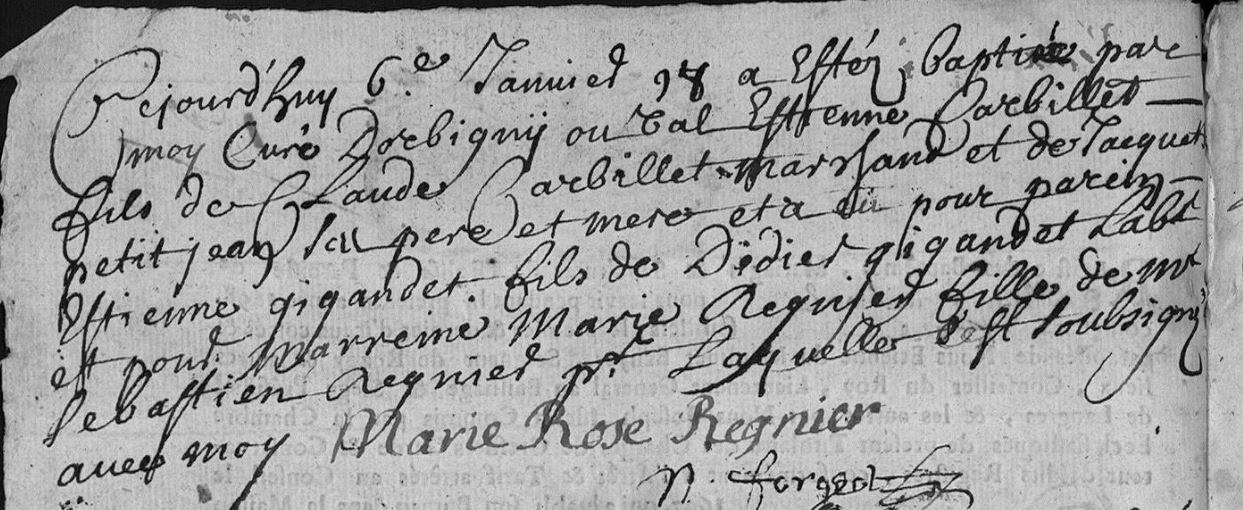 Cejourd'huy 6.e Janvier 98 a Estéz baptizé par
moy Curé Dorbigny ou val Estienne Carbillet
fils de Claude Carbillet marchand et de Jacquet
petit jean ses pere et mere et a eu pour parein
Estienne gigandet fils de Didier gigandet Labr
et pour Marreine Marie Regnier fille de mr
sebastien Regnier pr Laquelle s'est soubsigné
avec moy Marie Rose Regnier
forgeot